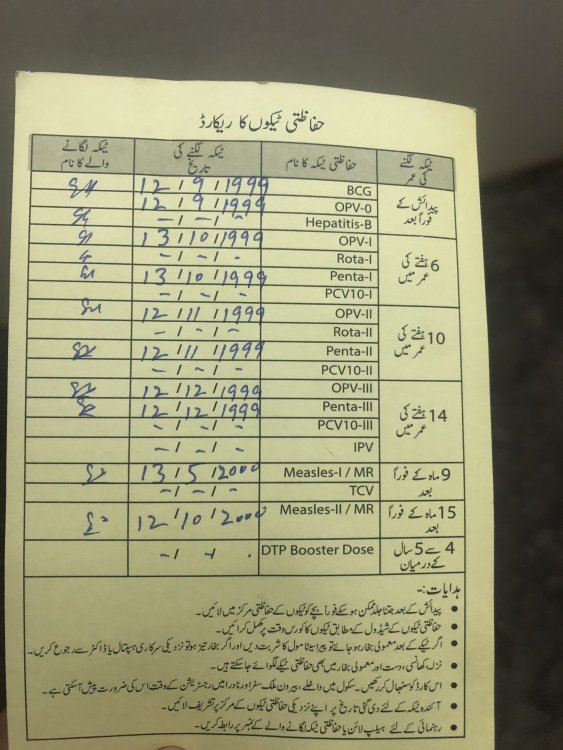 حفاظتی ٹیکوں کا ریکارڈ
ٹیکہ لگنے کی عمر | حفاظتی ٹیکہ کا نام | ٹیکہ لگنے کی تاریخ | ٹیکہ لگانے والے کا نام
پیدائش کے فوراً بعد | BCG | 12/9/1999
OPV-0 | 12/9/1999
Hepatitis-B | -/-/-
6 ہفتے کی عمر میں | OPV-I | 13/10/1999
Rota-I | -/-/-
Penta-I | 13/10/1999
PCV10-I | -/-/-
10 ہفتے کی عمر میں | OPV-II | 12/11/1999
Rota-II | -/-/-
Penta-II | 12/11/1999
PCV10-II | -/-/-
14 ہفتے کی عمر میں | OPV-III | 12/12/1999
Penta-III | 12/12/1999
PCV10-III | -/-/-
IPV | -/-/-
9 ماہ کے فوراً بعد | Measles-I / MR | 13/5/2000
TCV | -/-/-
15 ماہ کے فوراً بعد | Measles-II / MR | 12/10/2000
4 سے 5 سال کے درمیان | DTP Booster Dose | -/-/.
ہدایات:-
• پیدائش کے بعد جتنا جلد ممکن ہو سکے فوراً بچے کو ٹیکوں کے حفاظتی مرکز میں لائیں۔
• حفاظتی ٹیکوں کے شیڈول کے مطابق ٹیکوں کا کورس وقت پر مکمل کرائیں۔
• اگر ٹیکے کے بعد معمولی بخار ہو جائے تو پیراسیٹامول کا شربت دیں اور اگر بخار تیز ہو تو نزدیکی سرکاری ہسپتال یا ڈاکٹر سے رجوع کریں۔
• نزلہ، کھانسی، دست اور معمولی بخار میں بھی حفاظتی ٹیکے لگوائے جا سکتے ہیں۔
• اس کارڈ کو سنبھال کر رکھیں۔ سکول میں داخلے، بیرون ملک سفر اور نادرا میں رجسٹریشن کے وقت اس کی ضرورت پیش آ سکتی ہے۔
• آئندہ ٹیکہ کے لئے دی گئی تاریخ پر اپنے نزدیکی حفاظتی ٹیکوں کے مرکز پر تشریف لائیں۔
• رہنمائی کے لئے ہیلپ لائن یا حفاظتی ٹیکہ لگانے والے کے نمبر پر رابطہ کریں۔